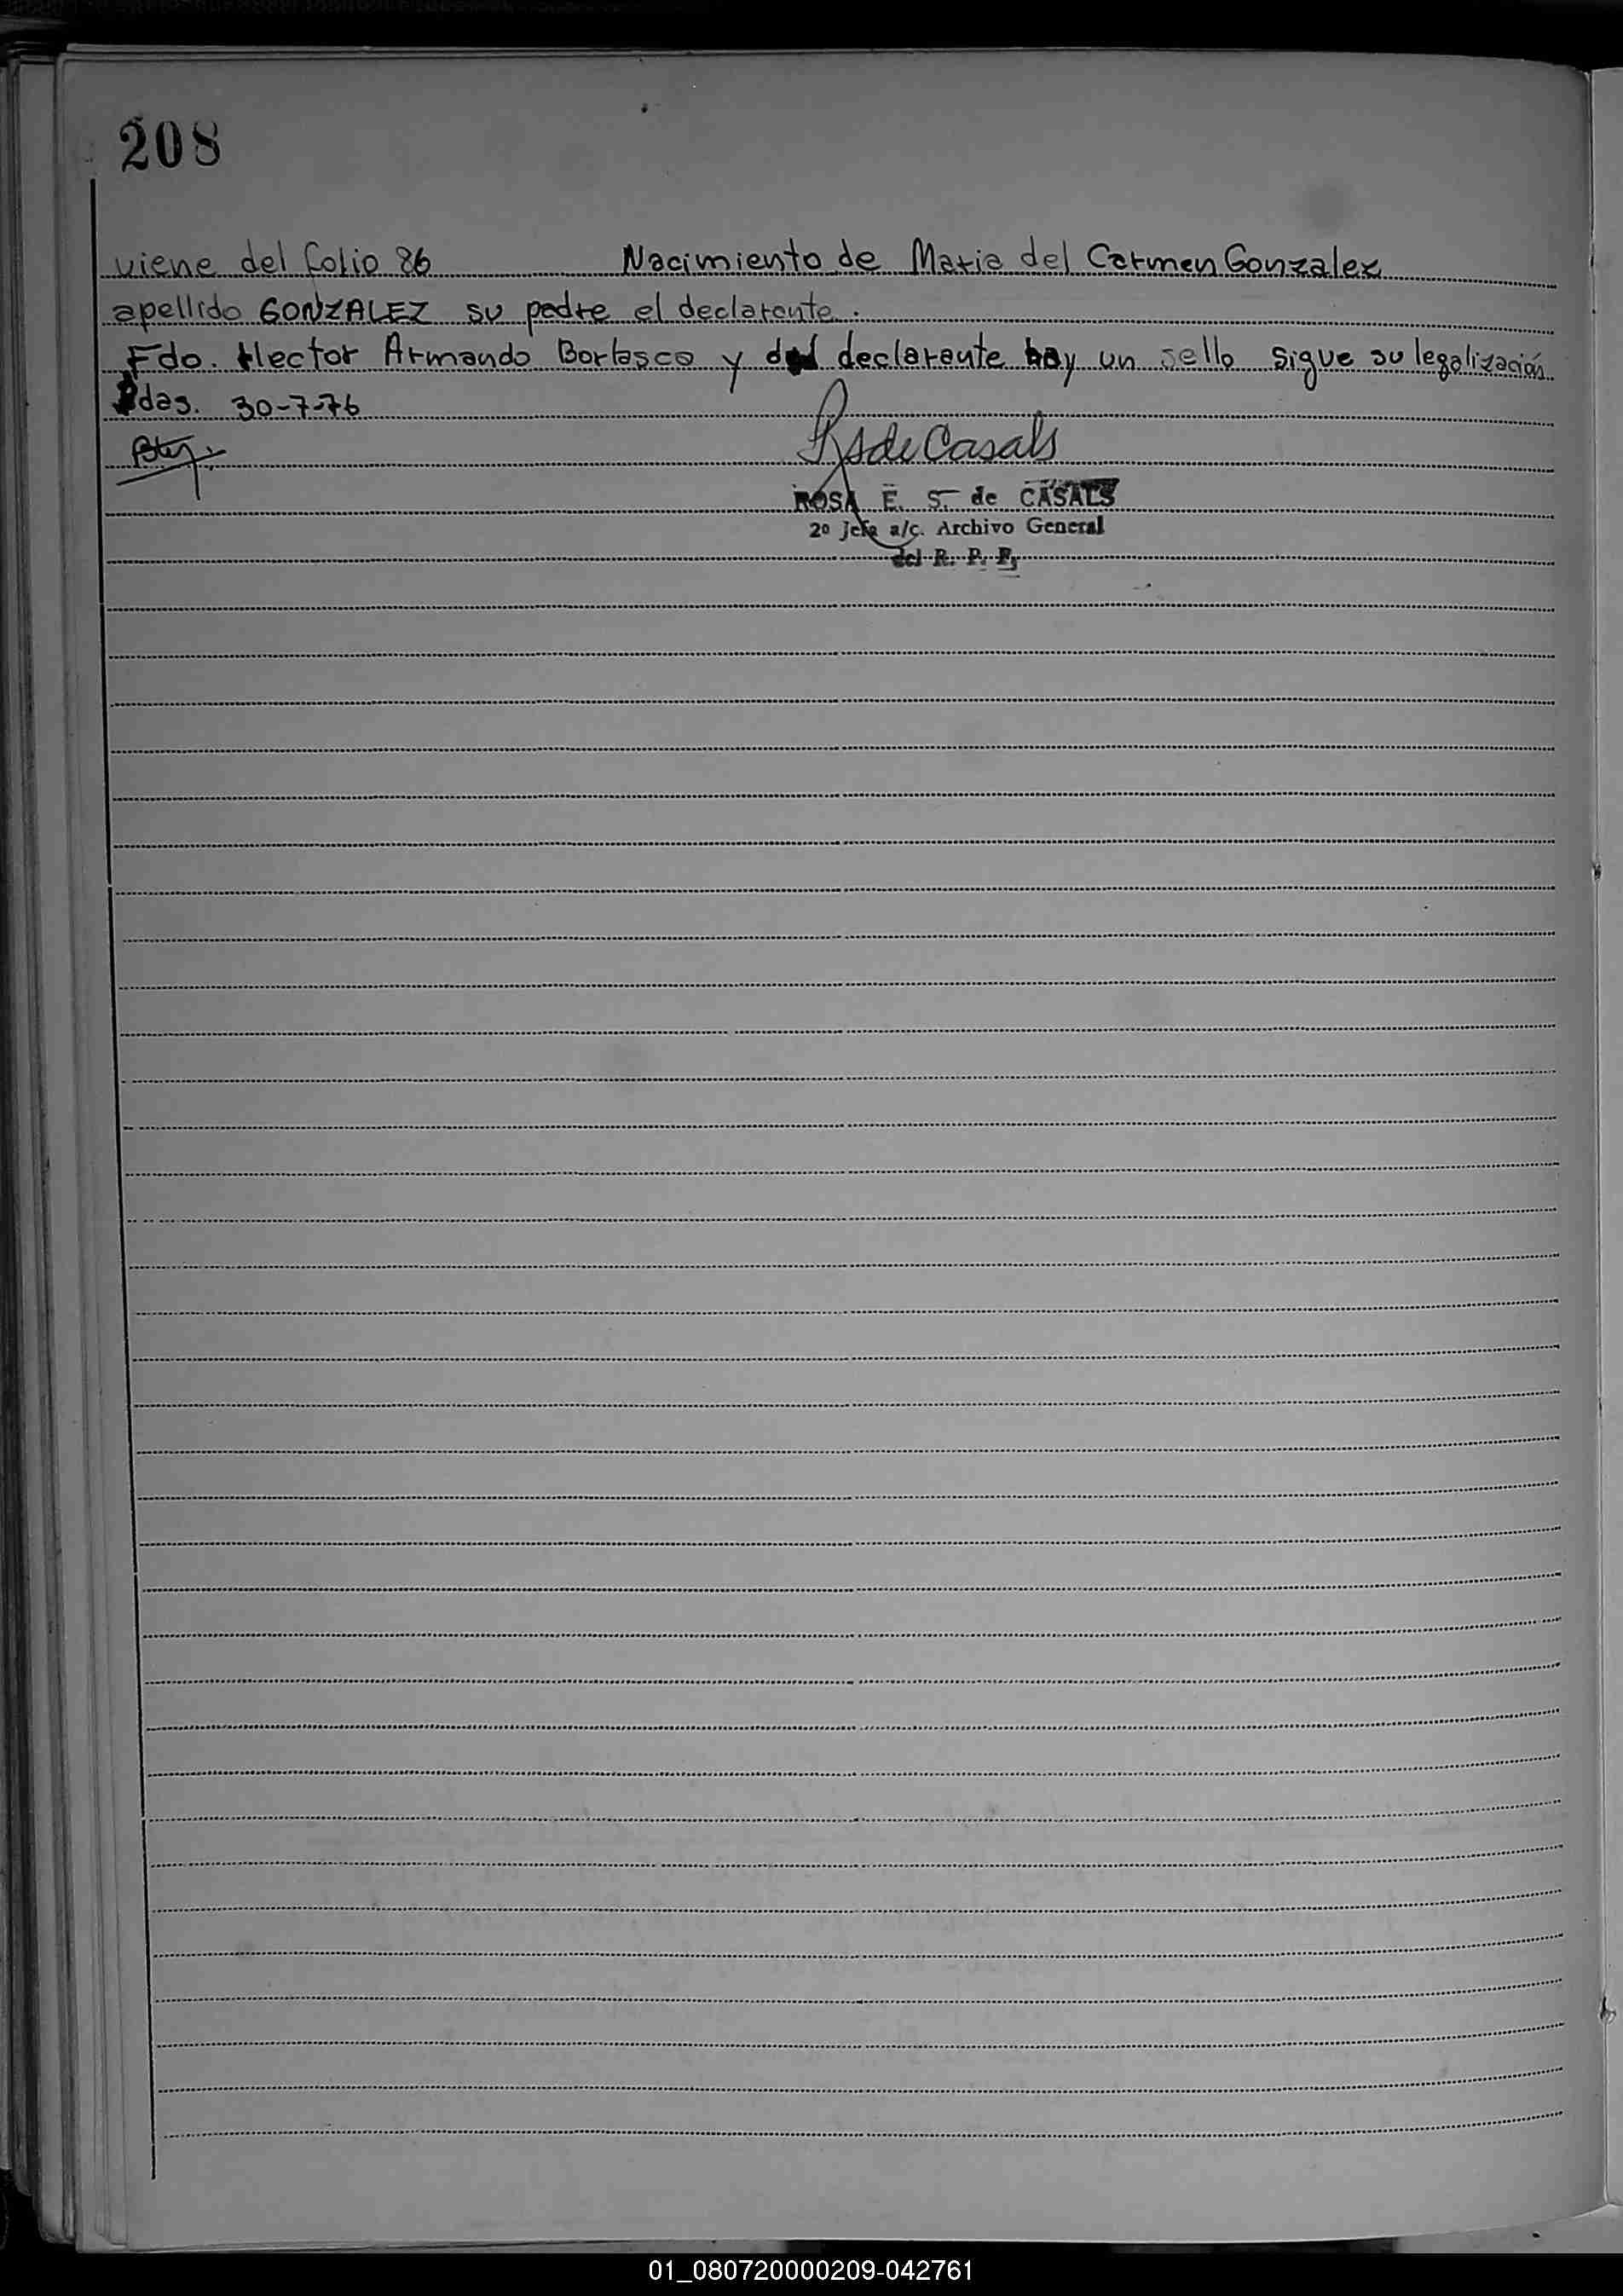 208
viene del folio 86 Nacimiento de Maria del Carmen Gonzalez
apellido GONZALEZ su padre el declarante.
Fdo. Hector Armando Borlasco y del declarante hay un sello sigue su legalización
Pdas. 30-7-76
RSdeCasals
ROSA E. S. de CASALS
2º Jefa a/c. Archivo General
del R. P. P.
01_080720000209-042761